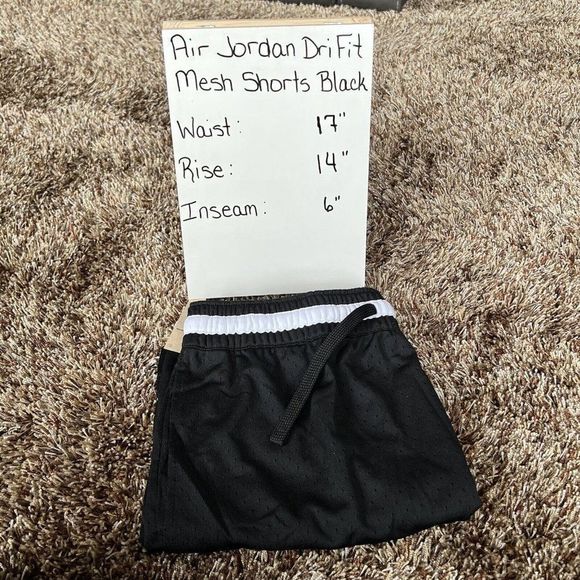 Air Jordan DriFit
Mesh Shorts Black
Waist: 17"
Rise: 14"
Inseam: 6"